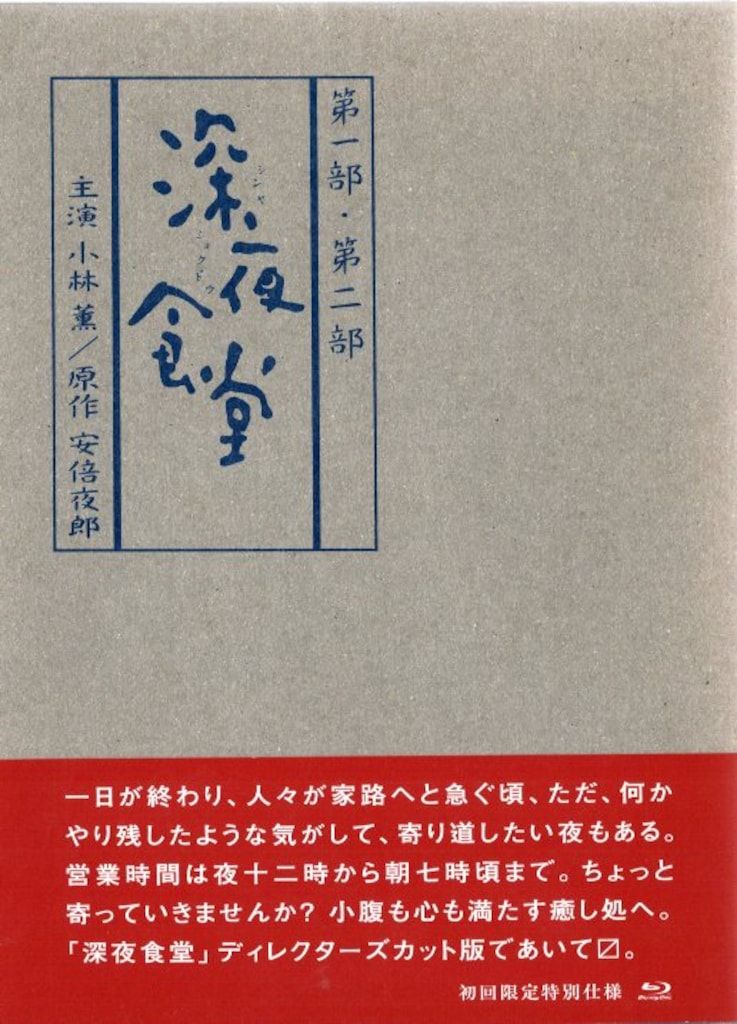 第一部・第二部
深夜食堂
シンヤ
ショクドウ
主演 小林 薫／原作 安倍夜郎
一日が終わり、人々が家路へと急ぐ頃、ただ、何か
やり残したような気がして、寄り道したい夜もある。
営業時間は夜十二時から朝七時頃まで。ちょっと
寄っていきませんか? 小腹も心も満たす癒し処へ。
「深夜食堂」ディレクターズカット版であいて〼。
初回限定特別仕様
Blu-ray Disc